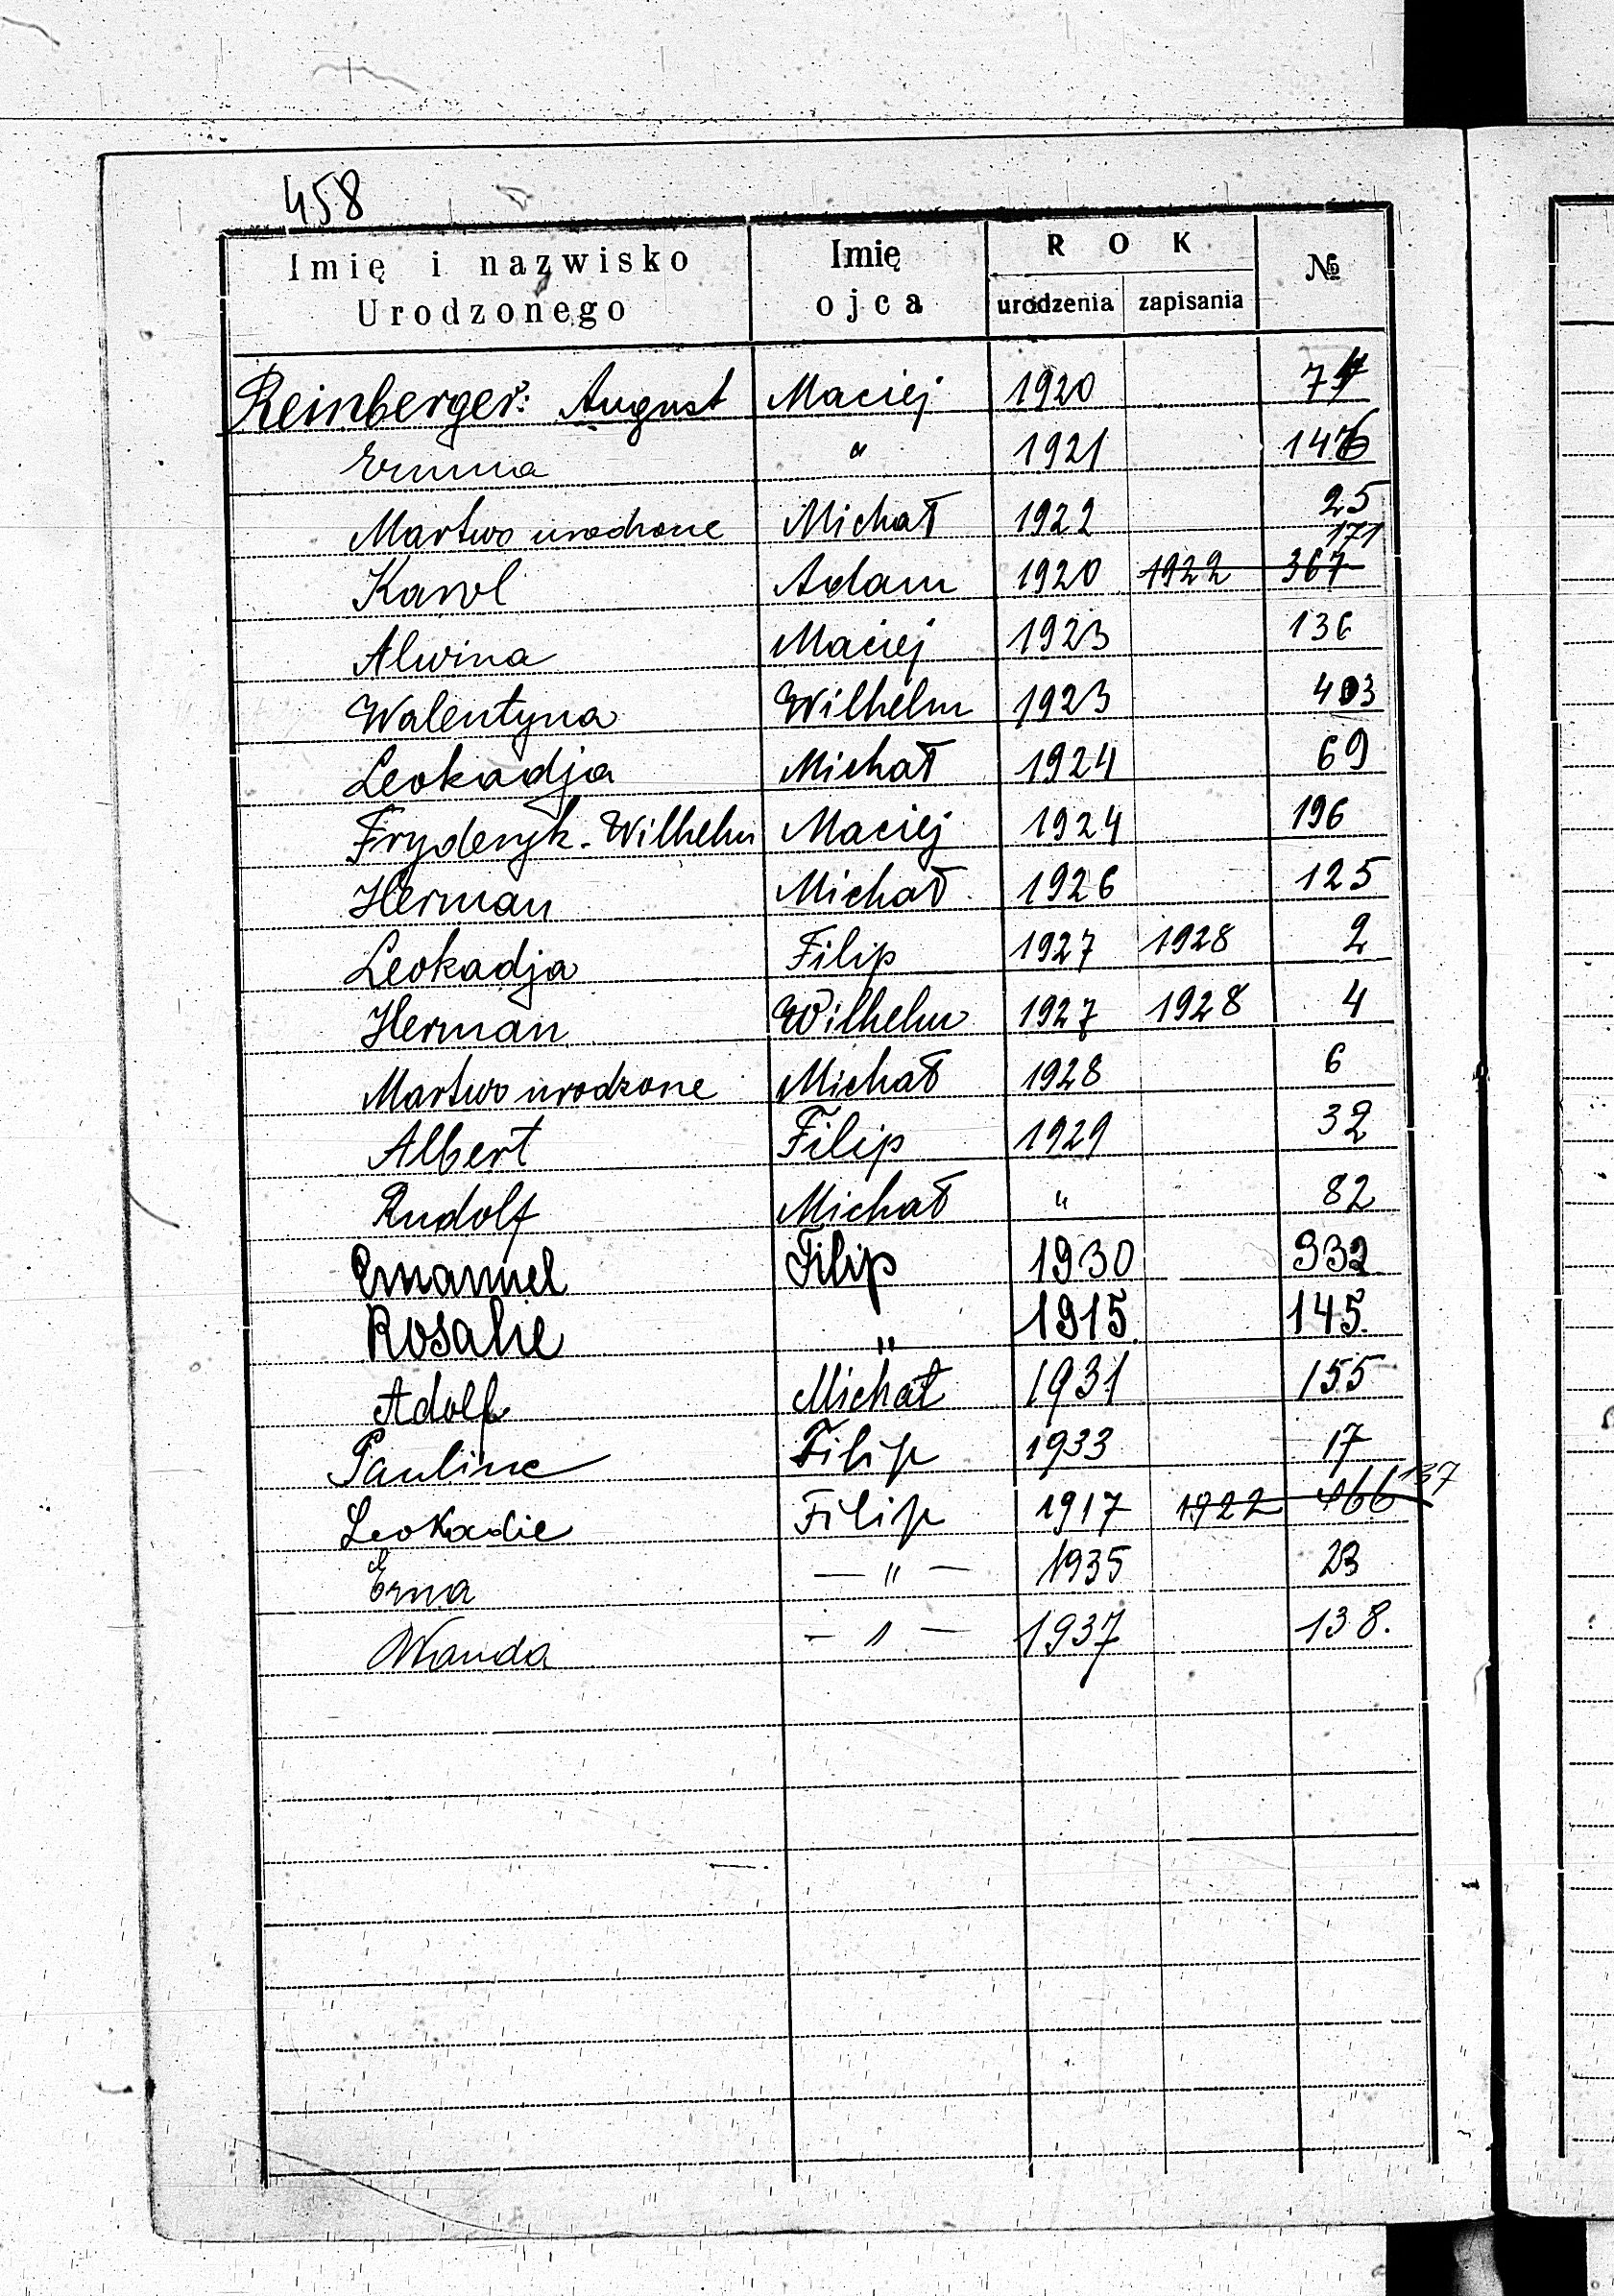 458
Imię i nazwisko Urodzonego Imię ojca ROK urodzenia zapisania №
Reinberger: August Maciej 1920 74
Emma " 1921 146
Martwo urodzone Michał 1922 25
171
Karol Adam 1920 1922 367
Alwina Maciej 1923 136
Walentyna Wilhelm 1923 403
Leokadja Michał 1924 69
Fryderyk-Wilhelm Maciej 1924 196
Herman Michał 1926 125
Leokadja Filip 1927 1928 2
Herman Wilhelm 1927 1928 4
Martwo urodzone Michał 1928 6
Albert Filip 1929 32
Rudolf Michał " 82
Emanuel Filip 1930 332
Rosalie " 1915 145.
Adolf Michał 1931 155
Pauline Filip 1933 17
Leokadie Filip 1917 1922 466 137
Erna — " — 1935 23
Wanda — " — 1937 138.